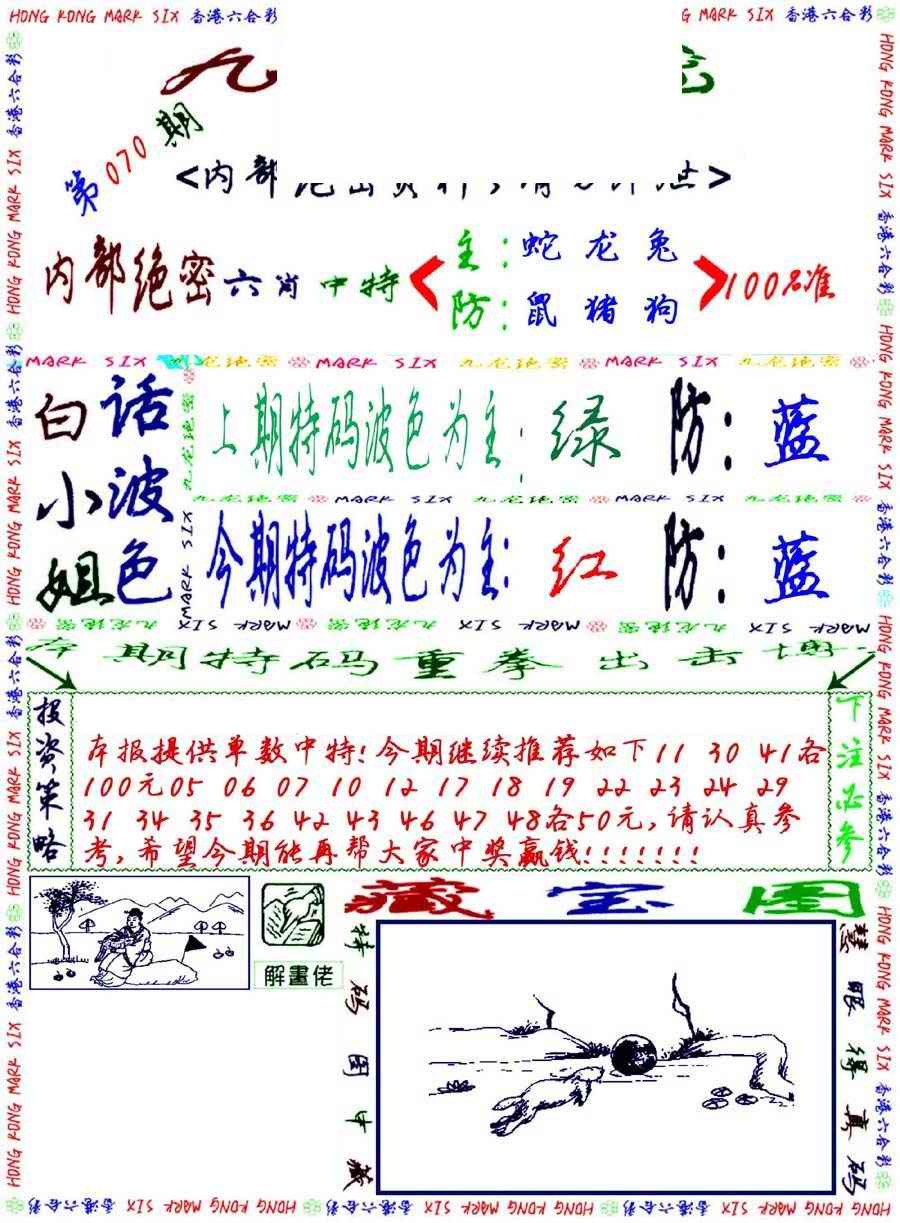 HONG KONG MARK SIX 香港六合彩
G MARK SIX 香港六合彩
九
第070期
<内部
>
内部绝密六肖中特
主:蛇龙兔
防:鼠猪狗
100%准
MARK SIX 九龙绝密 MARK SIX 九龙绝密 MARK SIX 九龙绝密
白话小波姐色
上期特码波色为主:绿 防:蓝
九龙绝密 MARK SIX 九龙绝密 MARK SIX 九龙绝密
今期特码波色为主:红 防:蓝
MARK SIX 九龙绝密 MARK SIX 九龙绝密 MARK SIX 九龙绝密
期特码重拳出击
投资策略
本报提供单数中特!今期继续推荐如下11 30 41各
100元05 06 07 10 12 17 18 19 22 23 24 29
31 34 35 36 42 43 46 47 48各50元,请认真参
考,希望今期能再帮大家中奖赢钱!!!!!!!
下注必参
解畫佬
藏宝图
特码图中藏
慧眼得真码
HONG KONG MARK SIX 香港六合彩